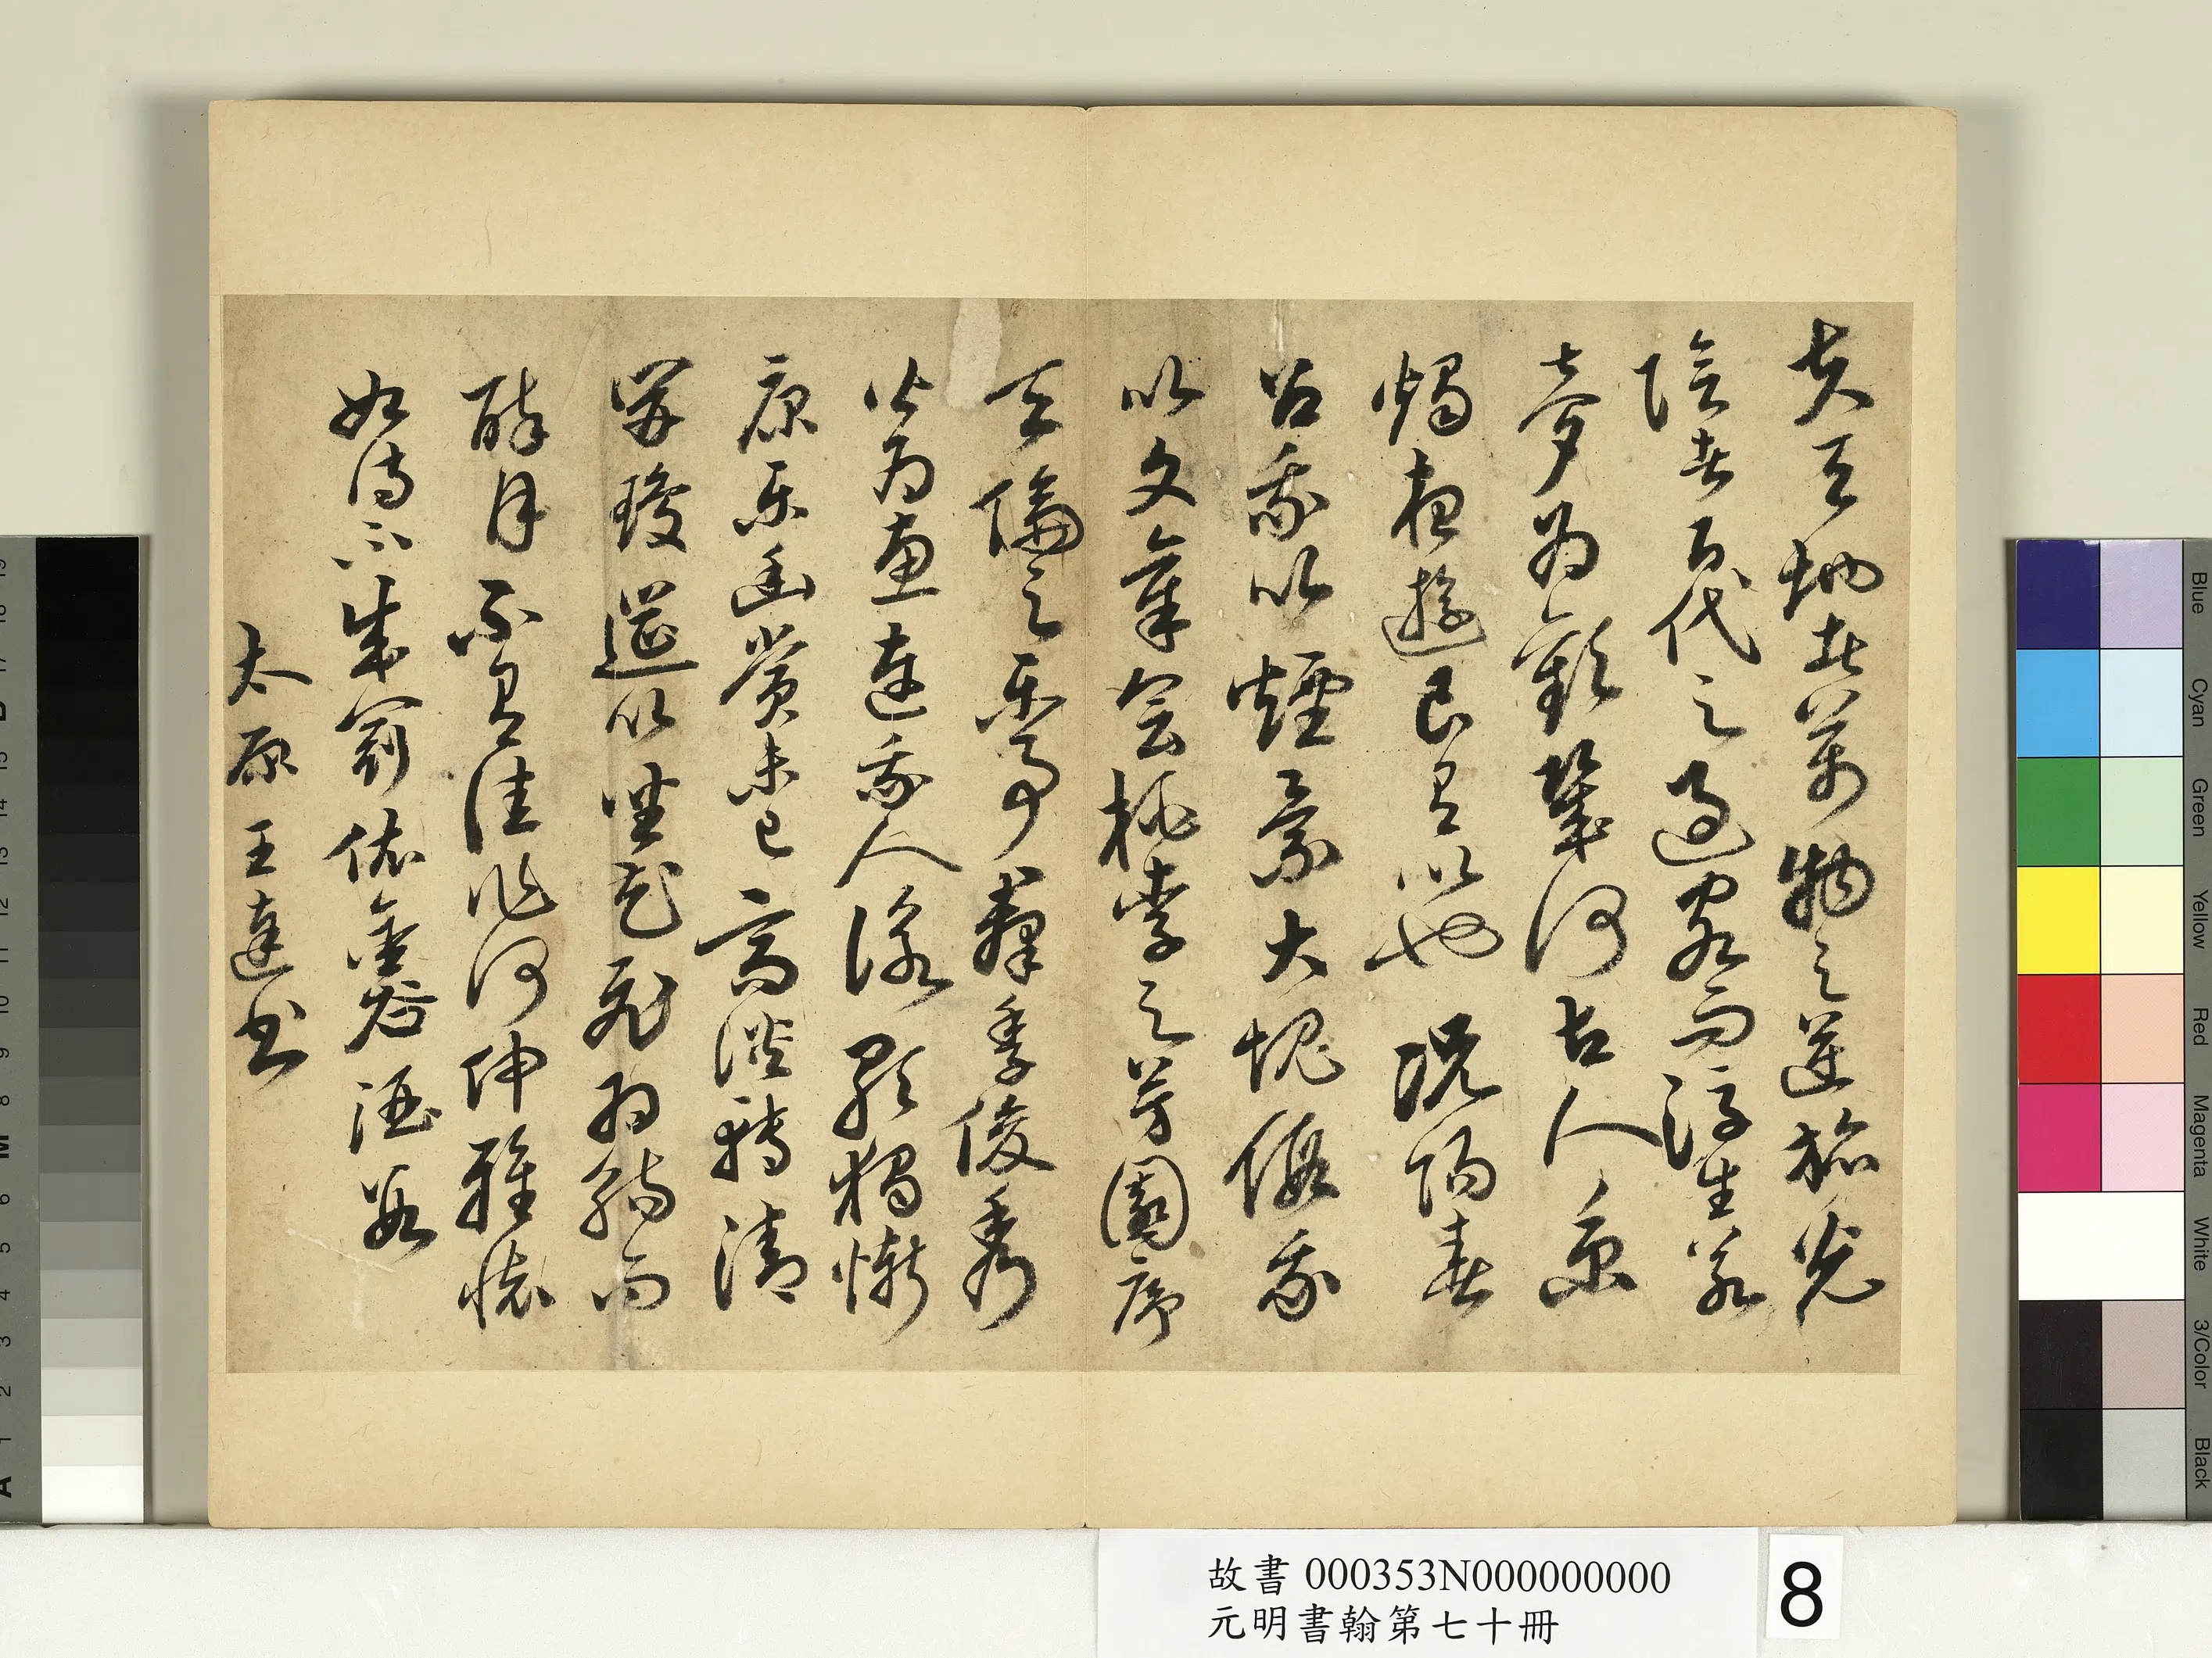 夫天地者萬物之逆旅光
陰者百代之過客而浮生若
夢為歡幾何古人秉
燭夜遊良有以也況陽春
召我以煙景大塊假我
以文章會桃李之芳園序
天倫之樂事群季俊秀
皆為惠連我人詠歌獨慚
康樂幽賞未已高談轉清
開瓊筵以坐花飛羽觴而
醉月不有佳作何伸雅懷
如詩不成罰依金谷酒數
太原王達書
故書 000353N000000000
元明書翰第七十冊
8
Blue
Cyan
Green
Yellow
Red
Magenta
White
3/Color
Black
A 1 2 3 4 5 6 M 8 9 10 11 12 13 14 15 B 17 18 19